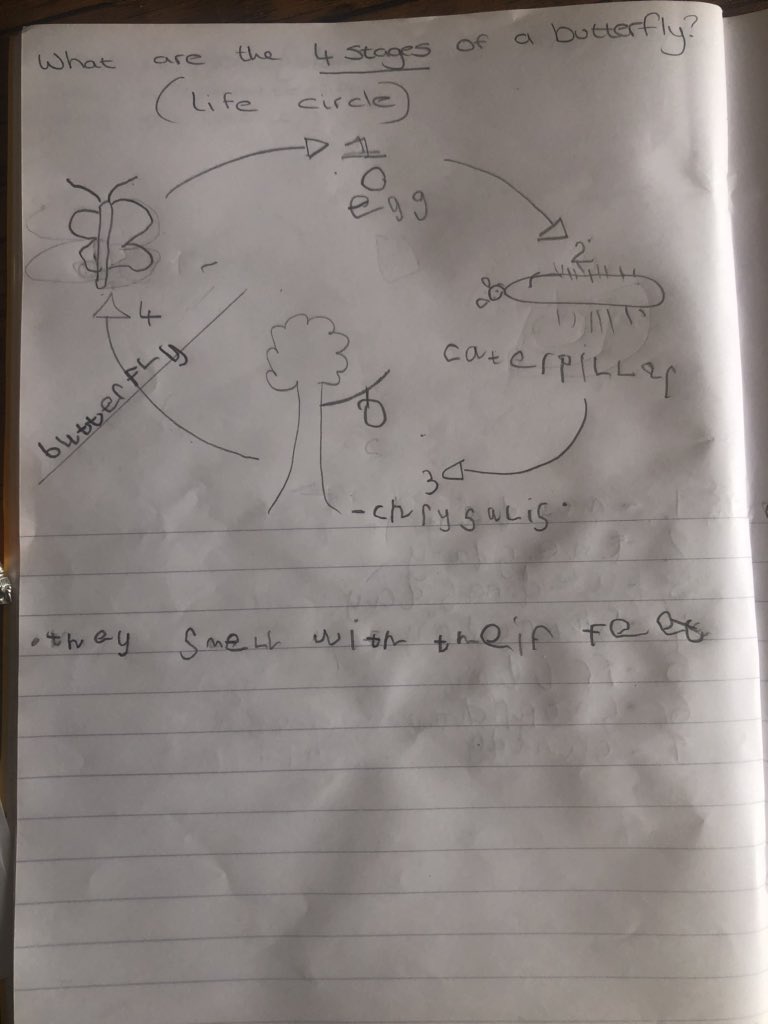 What are the 4 stages of a butterfly?
(Life circle)
1
egg
2
caterpiLLer
3
-chrysalis.
4
butterfLy
•they smell with their feet